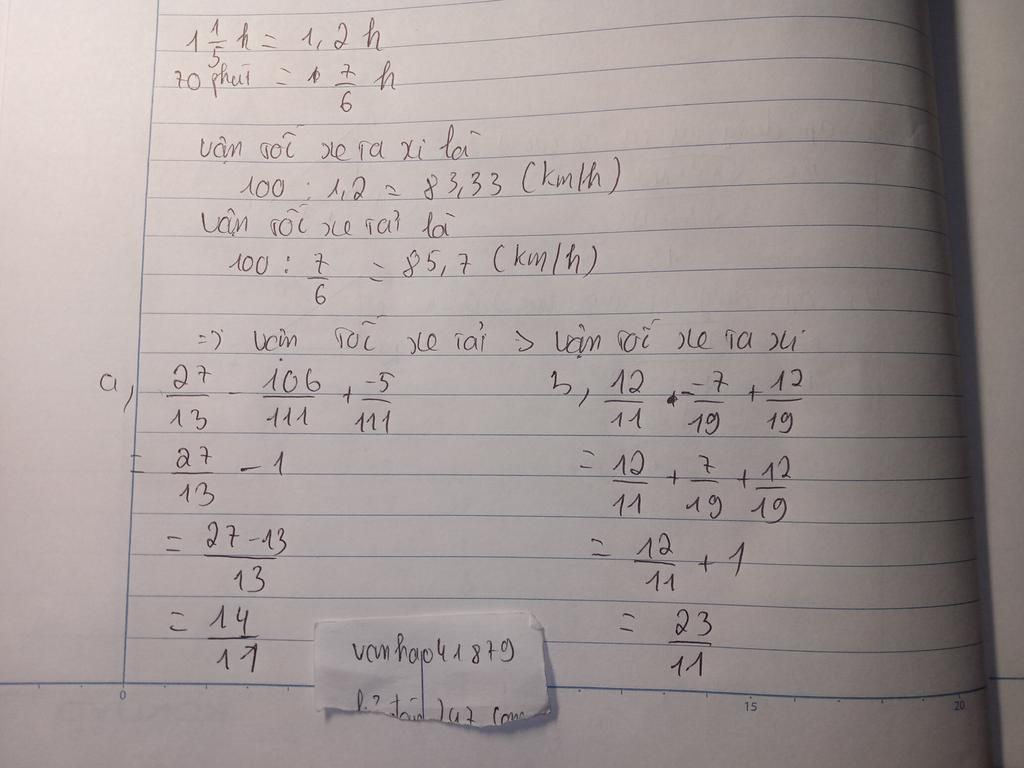 1 1/5 h = 1,2 h
70 phút = 7/6 h
vận tốc xe ta xi là
100 : 1,2 = 83,33 (km/h)
vận tốc xe tải là
100 : 7/6 = 85,7 (km/h)
=> vận tốc xe tải > vận tốc xe ta xi
a, 27/13 - 106/111 + -5/111
= 27/13 - 1
= 27-13/13
= 14/11
b, 12/11 - -7/19 + 12/19
= 12/11 + 7/19 + 12/19
= 12/11 + 1
= 23/11
vanhap41879
0 15 20